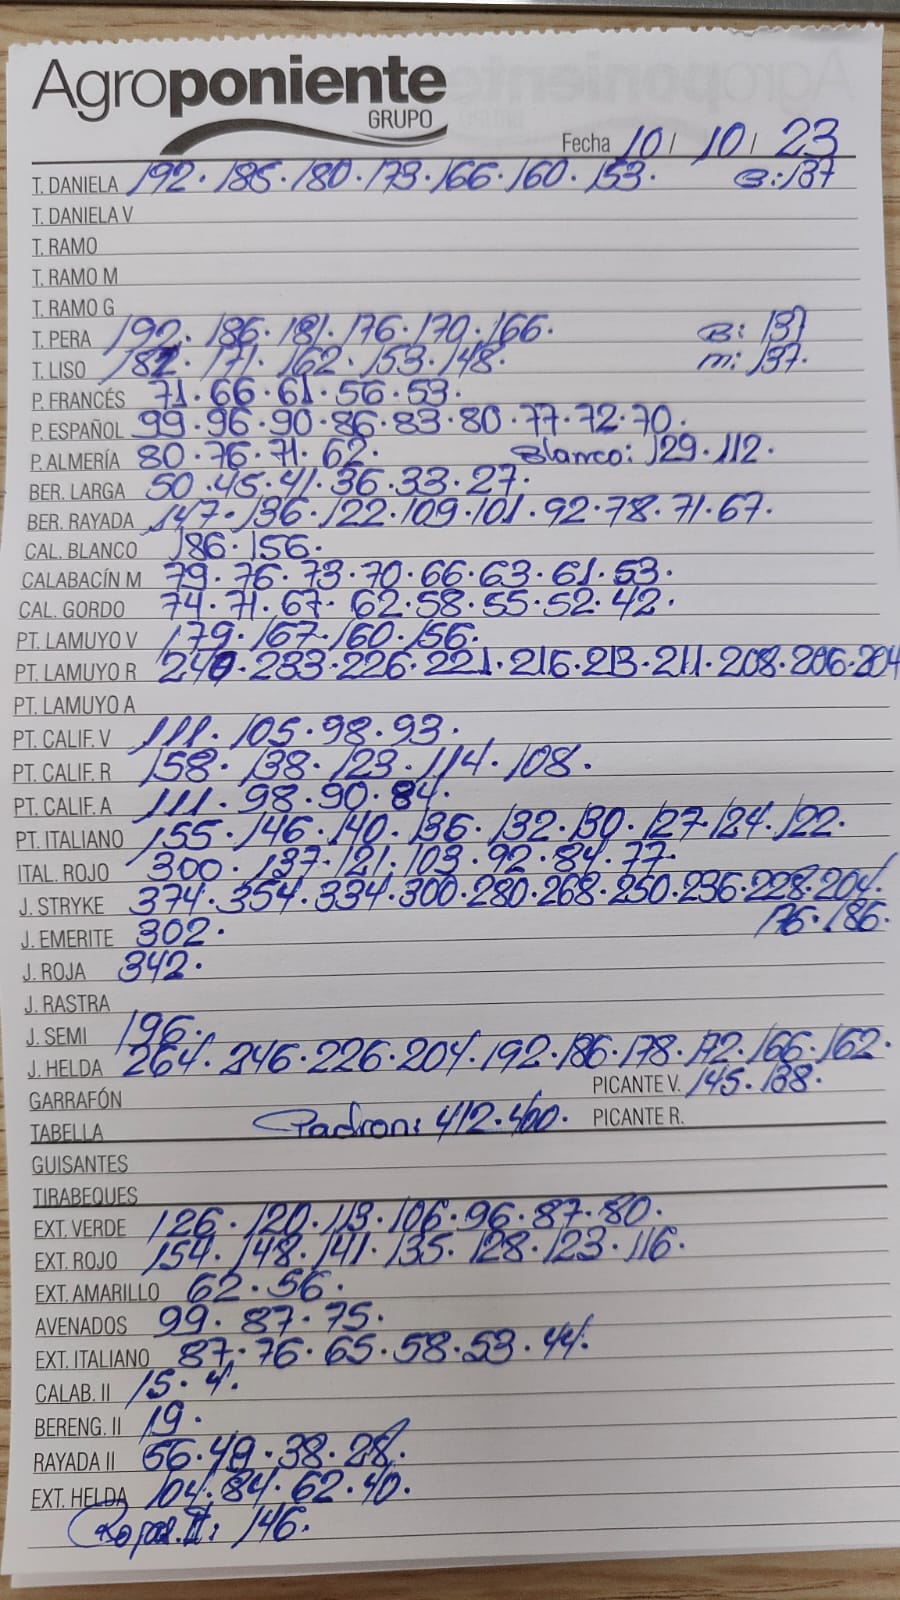 Agroponiente
GRUPO
Fecha 10 / 10 / 23
T. DANIELA 192 · 185 · 180 · 173 · 166 · 160 · 153. B: 137
T. DANIELA V
T. RAMO
T. RAMO M
T. RAMO G
T. PERA 192 · 186 · 181 · 176 · 170 · 166. B: 131
T. LISO 182 · 171 · 162 · 153 · 148. m: 137.
P. FRANCÉS 71 · 66 · 61 · 56 · 53.
P. ESPAÑOL 99 · 96 · 90 · 86 · 83 · 80 · 77 · 72 · 70.
P. ALMERÍA 80 · 76 · 71 · 62. Blanco: 129 · 112.
BER. LARGA 50 · 45 · 41 · 36 · 33 · 27.
BER. RAYADA 147 · 136 · 122 · 109 · 101 · 92 · 78 · 71 · 67.
CAL. BLANCO 186 · 156.
CALABACÍN M 79 · 76 · 73 · 70 · 66 · 63 · 61 · 53.
CAL. GORDO 74 · 71 · 67 · 62 · 58 · 55 · 52 · 42.
PT. LAMUYO V 179 · 167 · 160 · 156.
PT. LAMUYO R 240 · 233 · 226 · 221 · 216 · 213 · 211 · 208 · 206 · 204
PT. LAMUYO A
PT. CALIF. V 111 · 105 · 98 · 93.
PT. CALIF. R 158 · 138 · 123 · 114 · 108.
PT. CALIF. A 111 · 98 · 90 · 84.
PT. ITALIANO 155 · 146 · 140 · 136 · 132 · 130 · 127 · 124 · 122.
ITAL. ROJO 300 · 137 · 121 · 103 · 92 · 84 · 77.
J. STRYKE 374 · 354 · 334 · 300 · 280 · 268 · 250 · 236 · 228 · 204.
J. EMERITE 302. 176 · 186.
J. ROJA 342.
J. RASTRA
J. SEMI 196.
J. HELDA 264 · 246 · 226 · 204 · 192 · 186 · 178 · 172 · 166 · 162.
GARRAFÓN PICANTE V. 145 · 138.
TABELLA Padron: 412 · 400. PICANTE R.
GUISANTES
TIRABEQUES
EXT. VERDE 126 · 120 · 113 · 106 · 96 · 87 · 80.
EXT. ROJO 154 · 148 · 141 · 135 · 128 · 123 · 116.
EXT. AMARILLO 62 · 56.
AVENADOS 99 · 87 · 75.
EXT. ITALIANO 87 · 76 · 65 · 58 · 53 · 44.
CALAB. II 15 · 4.
BERENG. II 19.
RAYADA II 56 · 49 · 38 · 28.
EXT. HELDA 104 · 84 · 62 · 40.
Rojas II: 146.